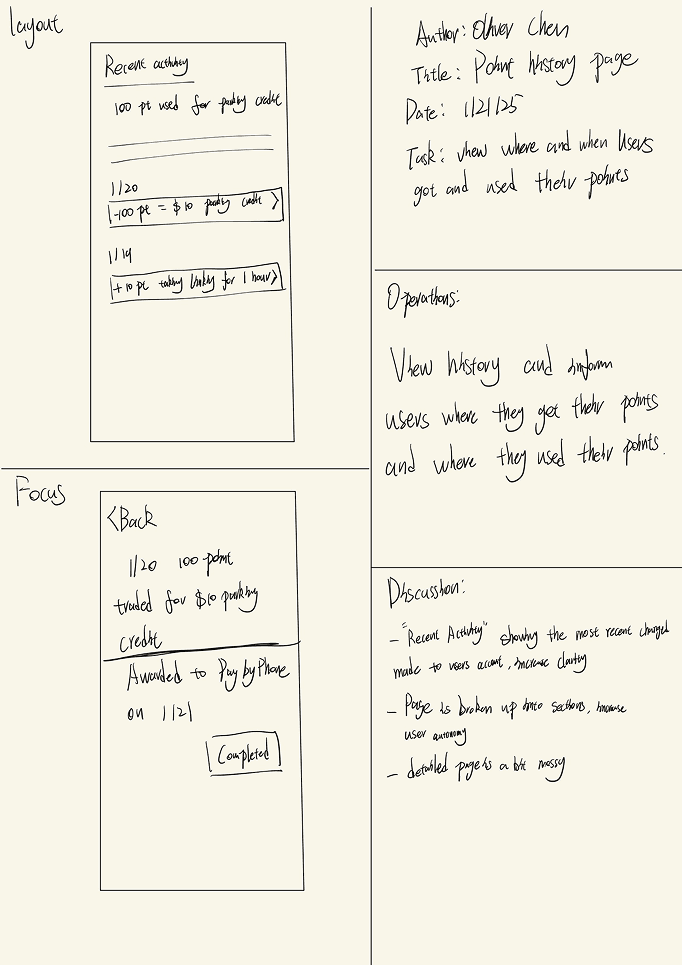 Layout
Recent activity
100 pt used for parking credit
1/20
-100 pt = $10 parking credit >
1/19
+10 pt taking for 1 hour>
Focus
<Back
1/20 100 point
traded for $10 parking
credit
Awarded to PaybyPhone
on 1/21
Completed
Author: Oliver Chen
Title: Point history page
Date: 1/21/25
Task: view where and when users
got and used their points
Operations:
View history and inform
users where they get their points
and where they used their points.
Discussion:
- "Recent Activity" showing the most recent changed
made to users account, increase clarity
- Page is broken up into sections, increase
user autonomy
- detailed page is a bit messy